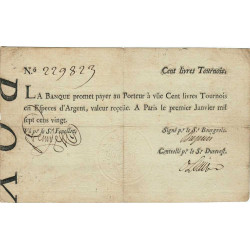 No 229823 Cent livres Tournois.
LA BANQUE promet payer au Porteur à vûe Cent livres Tournois
en Especes d'Argent, valeur reçeüe. A Paris le premier Janvier mil
sept cens vingt.
Vû pr. le Sr. Fenellon. Signé pr. le Sr. Bourgeois.
Controllé pr. le Sr. Durevest.